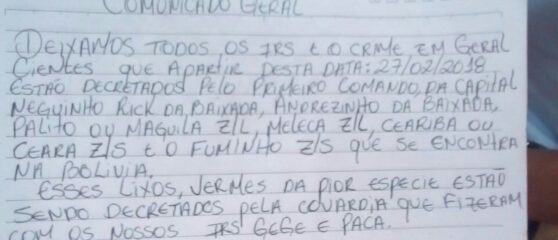 COMUNICADO GERAL
DEIXAMOS TODOS OS IRS E O CRIME EM GERAL
CIENTES QUE APARTIR DESTA DATA: 27/02/2018
ESTÃO DECRETADOS PELO PRIMEIRO COMANDO DA CAPITAL
NEGUINHO RICK DA BAIXADA, ANDREZINHO DA BAIXADA,
PALITO OU MAQUILA Z/L, MELECA Z/L, CEARIBA OU
CEARA Z/S E O FUMINHO Z/S QUE SE ENCONTRA
NA BOLIVIA.
ESSES LIXOS, VERMES DA PIOR ESPECIE ESTÃO
SENDO DECRETADOS PELA COVARDIA QUE FIZERAM
COM OS NOSSOS IRS GEGE E PACA.